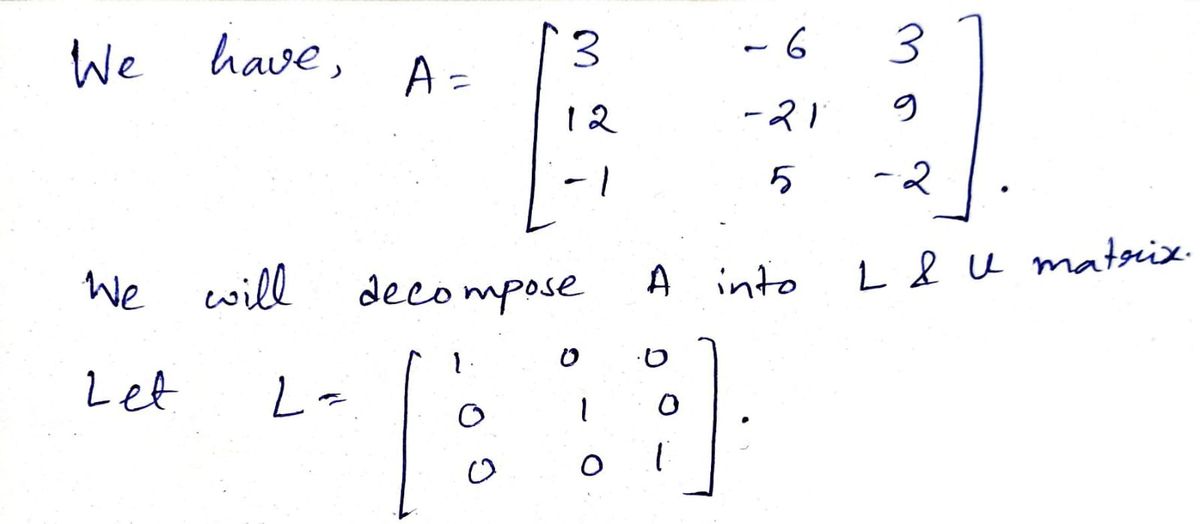 We have, A = [ 3 -6 3
12 -21 9
-1 5 -2 ].
We will decompose A into L & U matrix.
Let L = [ 1 0 0
0 1 0
0 0 1 ].